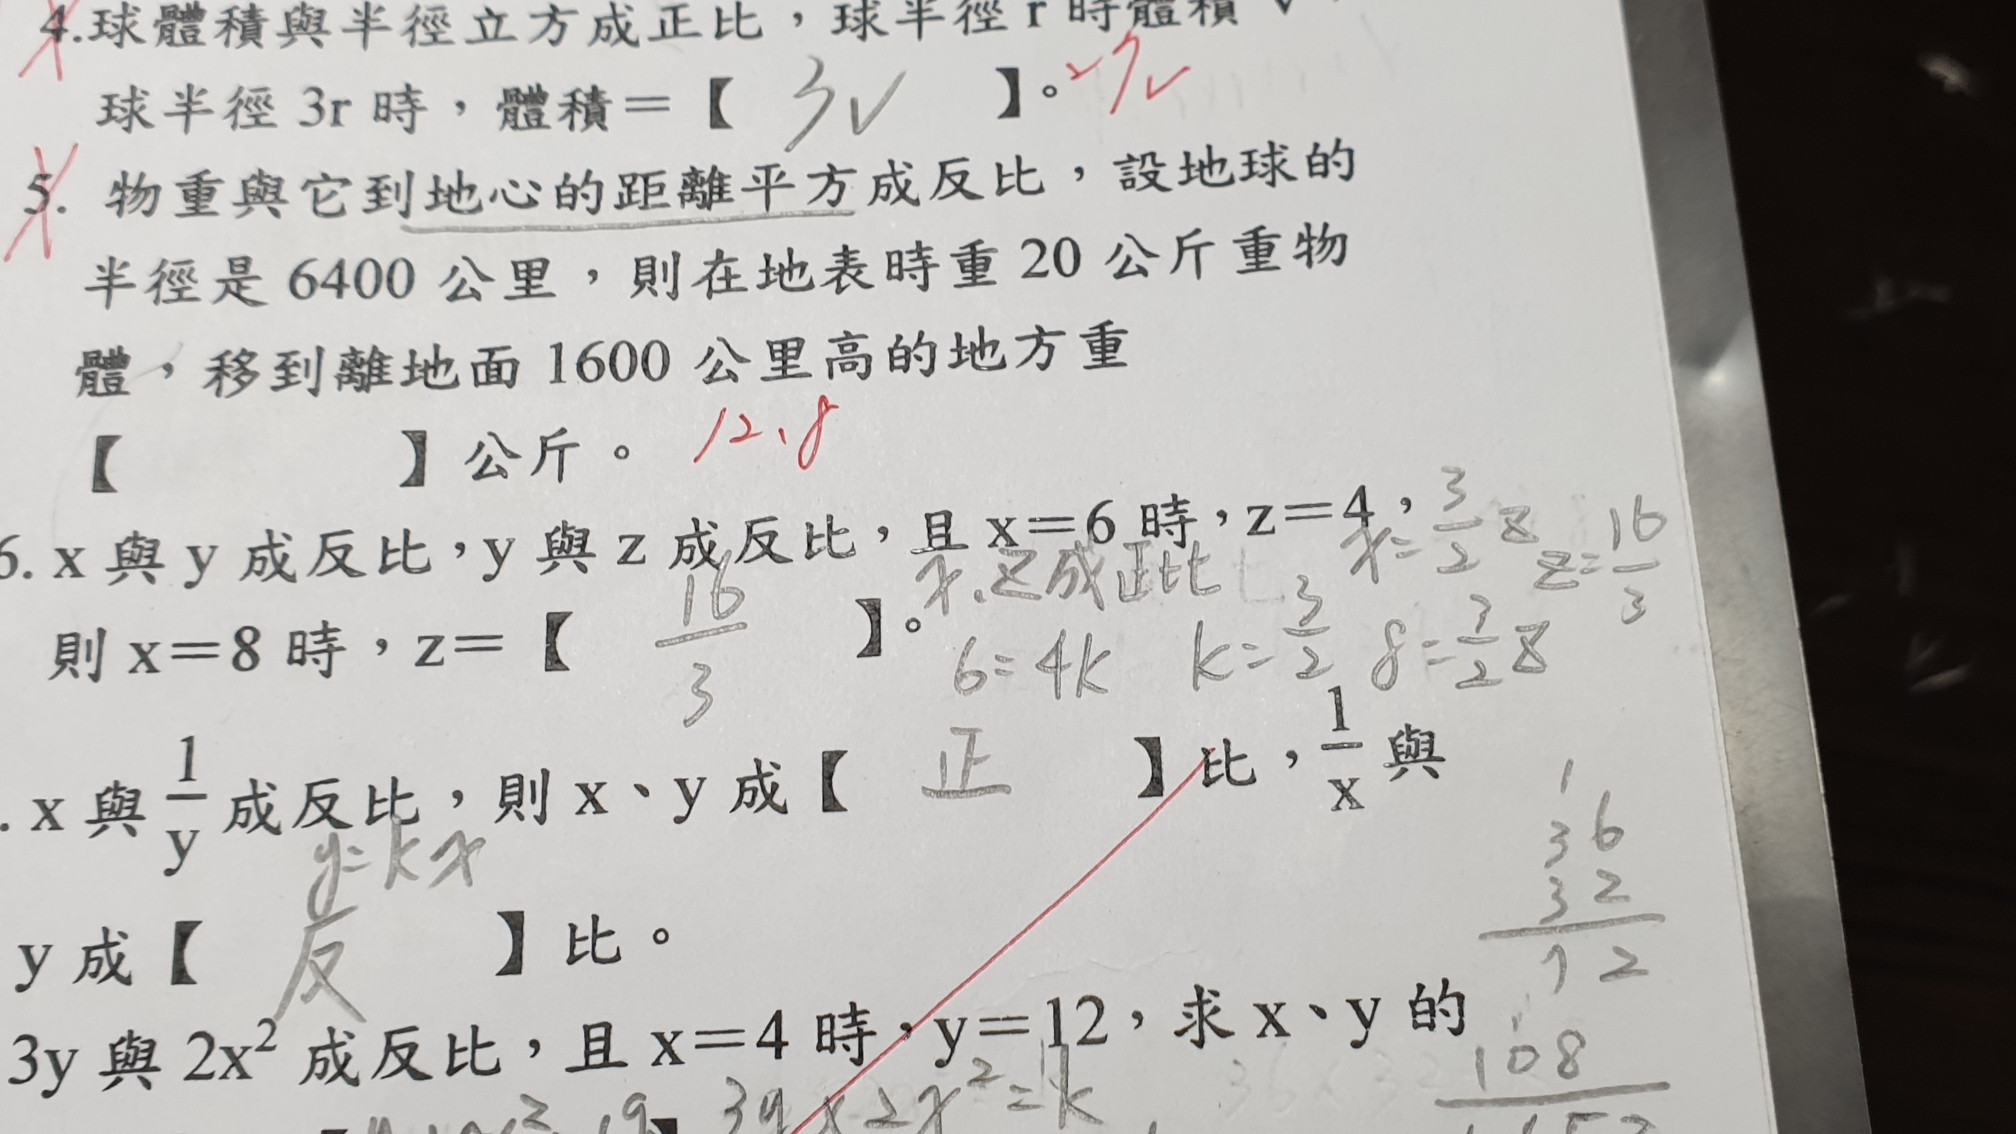 4.球體積與半徑立方成正比，球半徑 r 時體積 V，
球半徑 3r 時，體積＝【 3V 】。27V
5. 物重與它到地心的距離平方成反比，設地球的
半徑是 6400 公里，則在地表時重 20 公斤重物
體，移到離地面 1600 公里高的地方重
【 】公斤。 12.8
6. x 與 y 成反比，y 與 z 成反比，且 x＝6 時，z＝4，
x、z成正比 x=3/2 z z=16/3
則 x＝8 時，z＝【 16/3 】。
6=4k k=3/2 8=3/2 z
. x 與 1/y 成反比，則 x、y 成【 正 】比，1/x 與
y=kx
y 成【 反 】比。
36
32
72
108
3y 與 2x² 成反比，且 x＝4 時，y＝12，求 x、y 的
3y×2x²=k